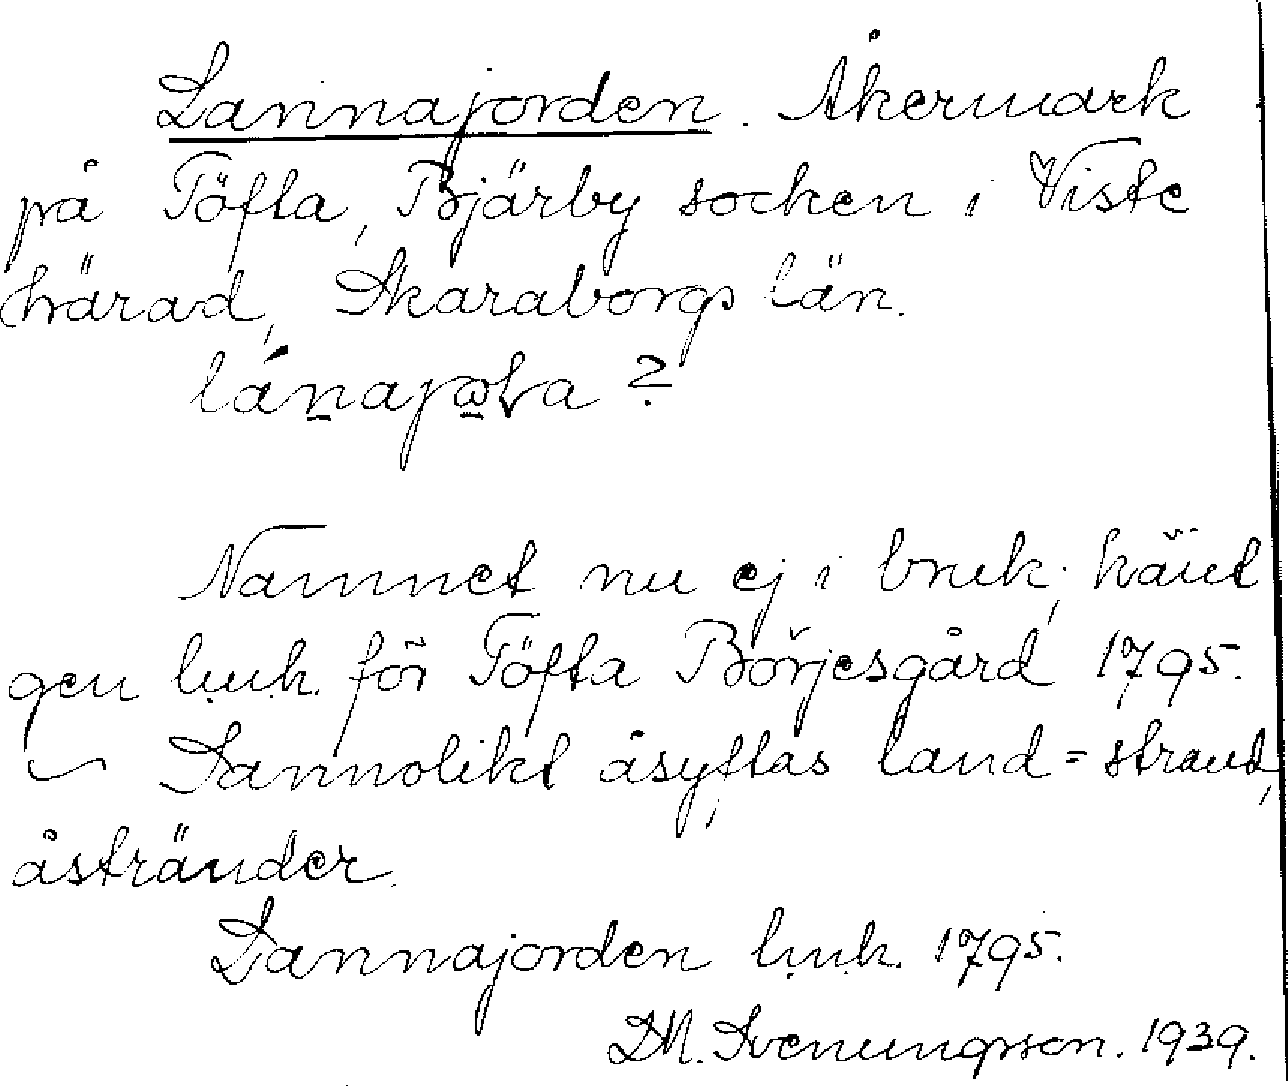 Lannajorden. Åkermark
på Töfta, Bjärby socken i Viste
härad, Skaraborgs län.
?
Namnet nu ej i bruk; känt
gen l.m.h. för Töfta Börjesgård 1795.
~ Sannolikt åsyftas land = strand,
åstränder.
Lannajorden l.m.h. 1795.
D.M. Svenungsson. 1939.